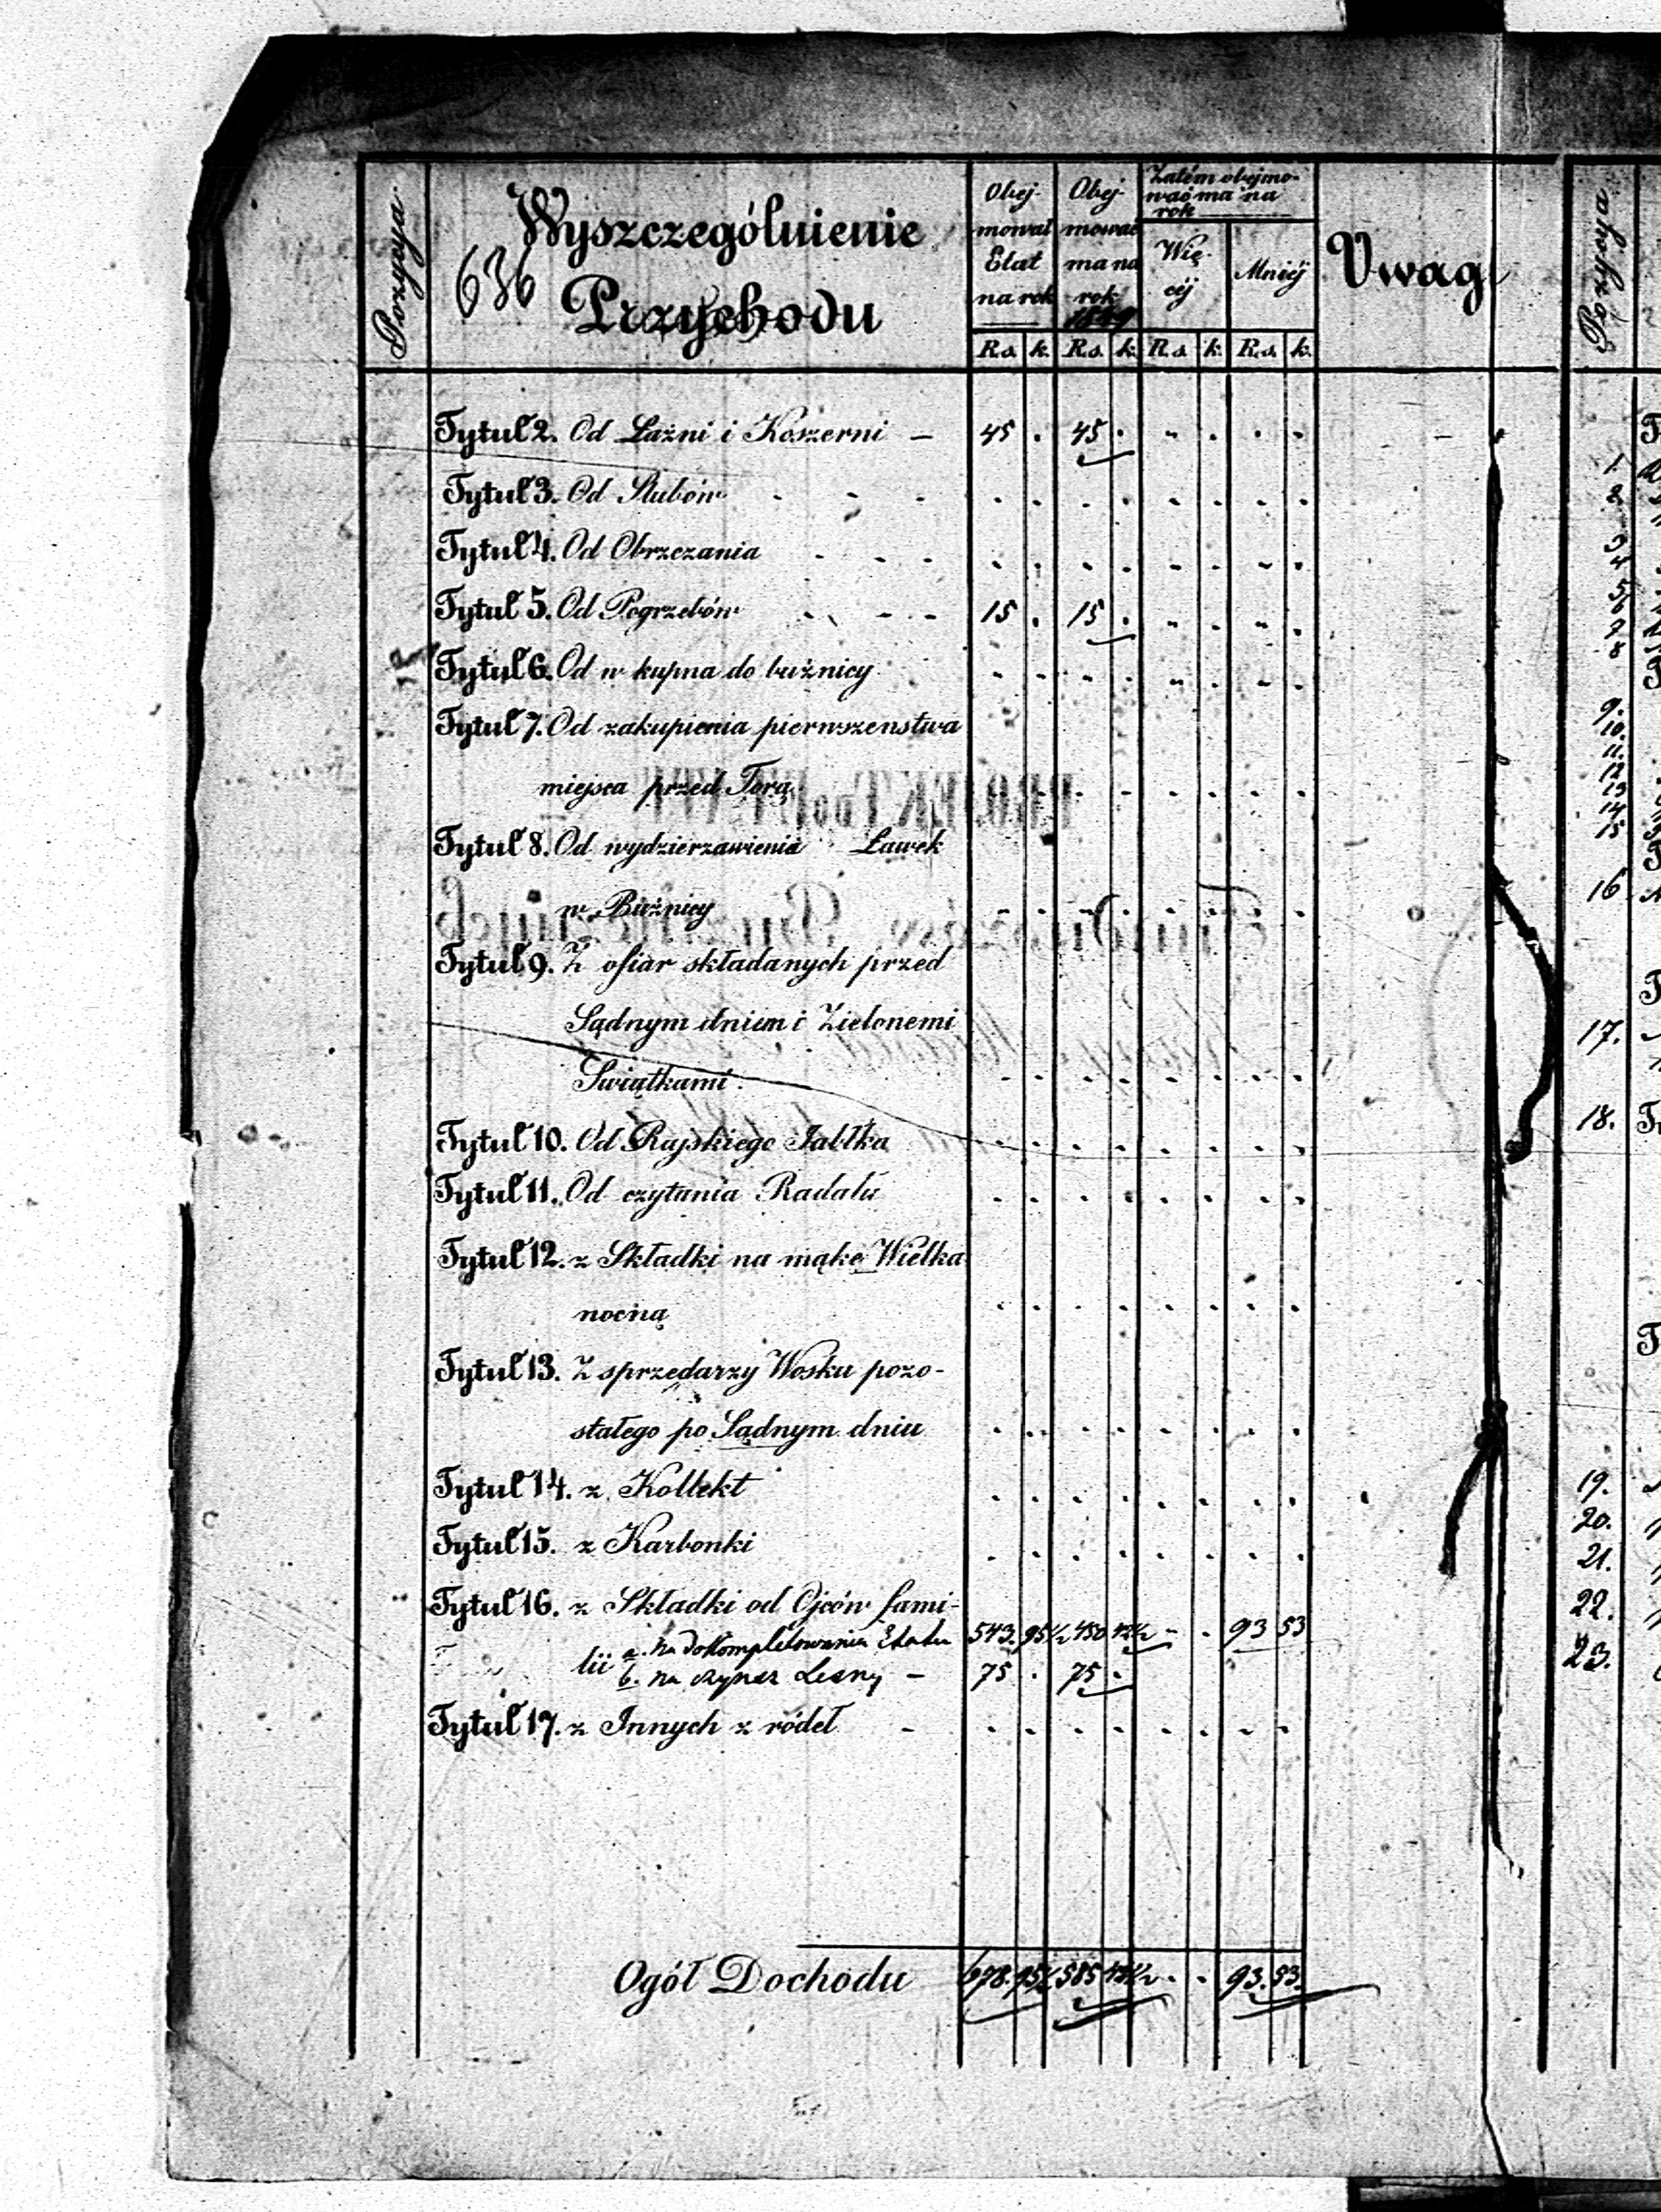 Pozycya
636
Wyszczególnienie
Przychodu
Obej-
mował
Etat
na rok
Obej-
mować
ma na
rok
1849
Zatém obejmo-
wać ma na
rok
Wię-
céj
Mniéj
Uwagi
Rs. k. Rs. k. Rs. k. Rs. k.
Tytuł 2. Od Łaźni i Koszerni — 45 . 45 .
Tytuł 3. Od Ślubów
Tytuł 4. Od Obrzezania
Tytuł 5. Od Pogrzebów 15 . 15 .
Tytuł 6. Od w kupna do bużnicy
Tytuł 7. Od zakupienia pierwszenstwa
miejsca przed Torą
Tytuł 8. Od wydzierzawienia Ławek
w Bużnicy
Tytuł 9. Z ofiar składanych przed
Sądnym dniem i Zielonemi
Swiątkami.
Tytuł 10. Od Rajskiego Jabłka
Tytuł 11. Od czytania Radału
Tytuł 12. z Składki na mąkę Wielka
nocną
Tytuł 13. Z sprzedarzy Wosku pozo-
stałego po Sądnym dniu
Tytuł 14. z Kollekt
Tytuł 15. z Karbonki
Tytuł 16. z Składki od Ojców fami-
lii a. Na dokompletowanie Etatu 543. 95½ 450 42½ - . 93 53
b. Na czynsz Lesny — 75 . 75 .
Tytuł 17. z Innych z ródeł
Ogół Dochodu 678. 95½ 585 42½ . . 93. 53.
Pozycya
1
2
3
4
5
6
7
8
9.
10.
11.
12
13
14
15
16
17.
18.
19.
20.
21.
22.
23.